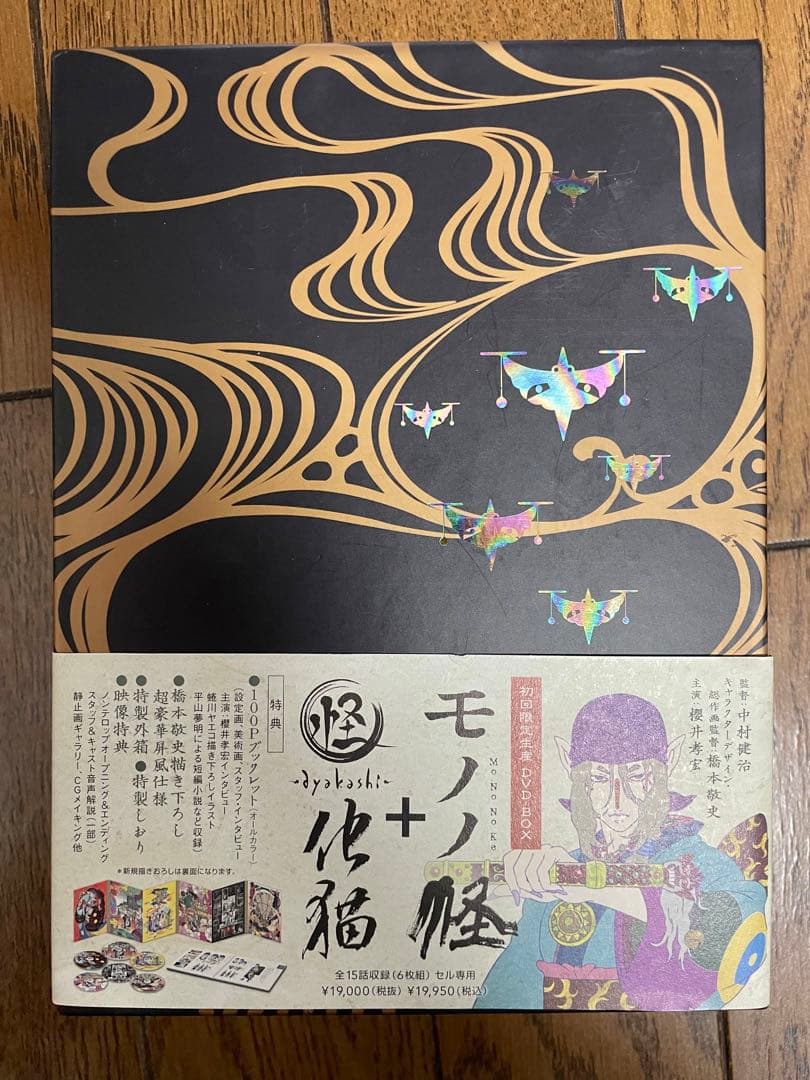 監督・中村健治
キャラクターデザイン・
総作画監督・橋本敬史
主演・櫻井孝宏
初回限定生産 DVD-BOX
モノノ怪
MoNoNoKe
+
怪
~ayakashi~
化猫
特典
●100Pブックレット(オールカラー)
(設定画、美術画、スタッフ・インタビュー
主演・櫻井孝宏インタビュー
蜷川ヤエコ描き下ろしイラスト
平山夢明による短編小説など収録)
●橋本敬史描き下ろし
超豪華屏風仕様
●特製外箱●特製しおり
●映像特典
ノンテロップオープニング&エンディング
スタッフ&キャスト音声解説(一部)
静止画ギャラリー、CGメイキング他
*新規描きおろしは裏面になります。
全15話収録(6枚組) セル専用
¥19,000(税抜) ¥19,950(税込)